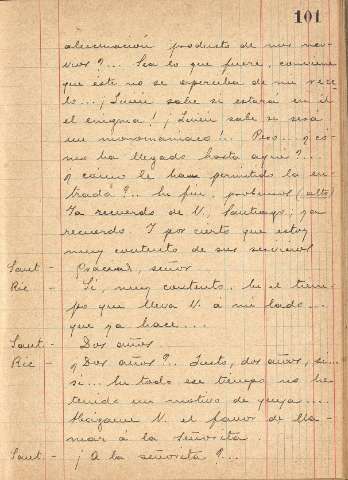 101
alucinación producto de mis ner-
vios?... Sea lo que fuere, conviene
que éste no se aperciba de mi rece-
lo... ¡Quién sabe si estará en él
el enigma! ¡Quién sabe si será
un monomaniaco!.. Pero... ¿có-
mo ha llegado hasta aquí?...
¿Y cómo le han permitido la en-
trada?.. En fin, probemos (alto)
Ya recuerdo de V, Santiago; ya
recuerdo. Y por cierto que estoy
muy contento de sus servicios
Sant - Gracias, señor
Ric - Sí, muy contento. En el tiem-
po que lleva V. a mi lado...
que ya hace...
Sant - Dos años
Ric - ¿Dos años?.. Justo, dos años, si...
si... En todo ese tiempo no he
tenido un motivo de queja....
Hágame V. el favor de lla-
mar á la señorita.
Sant - ¡A la señorita?...